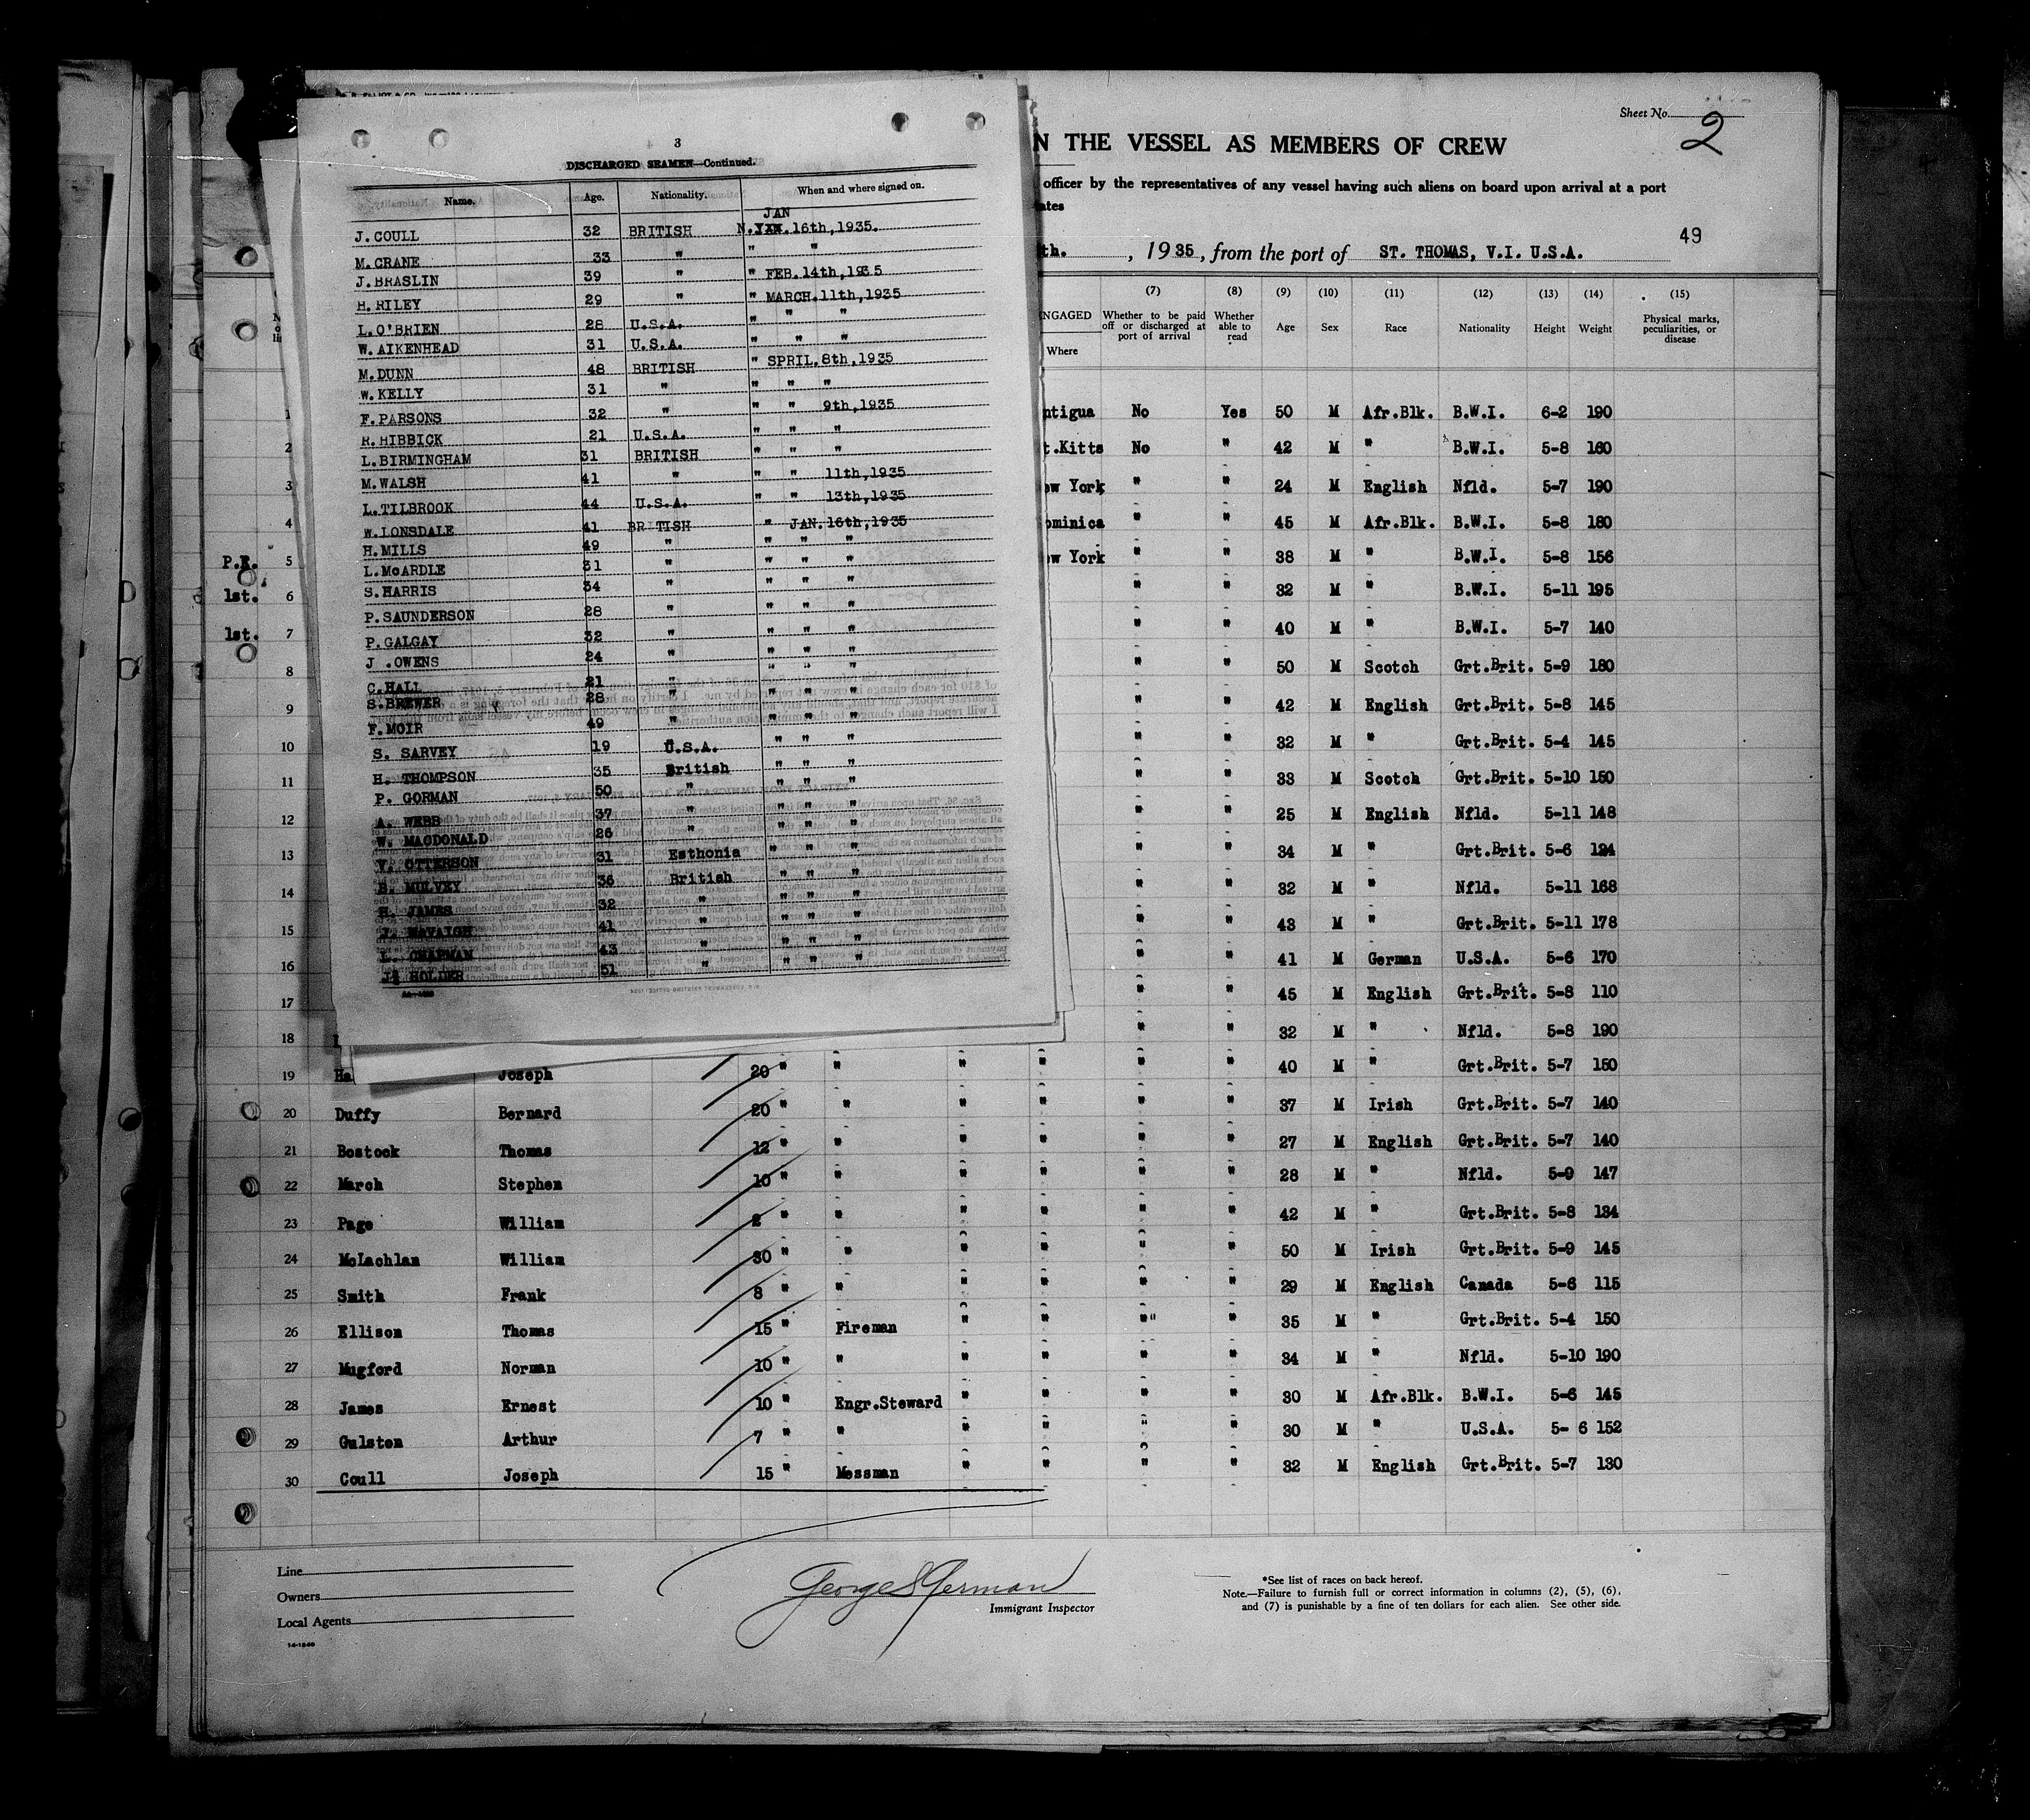 3
DISCHARGED SEAMEN—Continued.
Name. Age. Nationality. When and where signed on.
JAN
J. COULL 32 BRITISH N.Y. 16th,1935.
M. CRANE 33 " " "
J. BRASLIN 39 " " FEB.14th,1935
H. RILEY 29 " " MARCH.11th,1935
L. O'BRIEN 28 U.S.A. " " "
W. AIKENHEAD 31 U.S.A. " " "
M. DUNN 48 BRITISH " SPRIL.8th,1935
W. KELLY 31 " " " "
F. PARSONS 32 " " " 9th,1935
R. HIBBICK 21 U.S.A. " " "
L. BIRMINGHAM 31 BRITISH " " "
M. WALSH 41 " " " 11th,1935
L. TILBROOK 44 U.S.A. " " 13th,1935
W. LONSDALE 41 BRITISH " JAN.16th,1935
H. MILLS 49 " " " "
L. McARDLE 31 " " " "
S. HARRIS 34 " " " "
P. SAUNDERSON 28 " " " "
P. GALGAY 32 " " " "
J .OWENS 24 " " " "
C. HALL 21 " " " "
S. BREWER 28 " " " "
F. MOIR 49 " " " "
S. SARVEY 19 U.S.A. " " "
H. THOMPSON 35 British " " "
P. GORMAN 50 " " " "
A. WEBB 37 " " " "
W. MACDONALD 26 " " " "
V. OTTERSON 31 Esthonia " " "
B. MULVEY 36 British " " "
H. JAMES 32 " " " "
J. 41 " " " "
L. CHAPMAN 43 " " " "
J. HOLDER 51 " " " "
Sheet No. 2
N THE VESSEL AS MEMBERS OF CREW
officer by the representatives of any vessel having such aliens on board upon arrival at a port
ates
49
th. , 1935, from the port of ST. THOMAS, V.I. U.S.A.
(7) (8) (9) (10) (11) (12) (13) (14) (15)
NGAGED Where Whether to be paid off or discharged at port of arrival Whether able to read Age Sex Race Nationality Height Weight Physical marks, peculiarities, or disease
1 ntigua No Yes 50 M Afr.Blk. B.W.I. 6-2 190
2 t.Kitts No " 42 M " B.W.I. 5-8 160
3 ew York " " 24 M English Nfld. 5-7 190
4 ominica " " 45 M Afr.Blk. B.W.I. 5-8 180
P.R. 5 ew York " " 38 M " B.W.I. 5-8 156
1st. 6 " " 32 M " B.W.I. 5-11 195
1st. 7 " " 40 M " B.W.I. 5-7 140
8 " " 50 M Scotch Grt.Brit. 5-9 180
9 " " 42 M English Grt.Brit. 5-8 145
10 " " 32 M " Grt.Brit. 5-4 145
11 " " 33 M Scotch Grt.Brit. 5-10 150
12 " " 25 M English Nfld. 5-11 148
13 " " 34 M " Grt.Brit. 5-6 124
14 " " 32 M " Nfld. 5-11 168
15 " " 43 M " Grt.Brit. 5-11 178
16 " " 41 M German U.S.A. 5-6 170
17 " " 45 M English Grt.Brit. 5-8 110
18 " " 32 M " Nfld. 5-8 190
19 Ha Joseph 20 " " " " " " 40 M " Grt.Brit. 5-7 150
20 Duffy Bernard 20 " " " " " " 37 M Irish Grt.Brit. 5-7 140
21 Bostock Thomas 12 " " " " " " 27 M English Grt.Brit. 5-7 140
22 March Stephen 10 " " " " " " 28 M " Nfld. 5-9 147
23 Page William 2 " " " " " " 42 M " Grt.Brit. 5-8 134
24 McLachlan William 30 " " " " " " 50 M Irish Grt.Brit. 5-9 145
25 Smith Frank 8 " " " " " " 29 M English Canada 5-6 115
26 Ellison Thomas 15 " Fireman " " " " 35 M " Grt.Brit. 5-4 150
27 Mugford Norman 10 " " " " " " 34 M " Nfld. 5-10 190
28 James Ernest 10 " Engr.Steward " " " " 30 M Afr.Blk. B.W.I. 5-6 145
29 Gulston Arthur 7 " " " " " " 30 M " U.S.A. 5- 6 152
30 Coull Joseph 15 " Messman " " " " 32 M English Grt.Brit. 5-7 130
Line
Owners
Local Agents
14-1240
George S German
Immigrant Inspector
*See list of races on back hereof.
Note.—Failure to furnish full or correct information in columns (2), (5), (6),
and (7) is punishable by a fine of ten dollars for each alien. See other side.